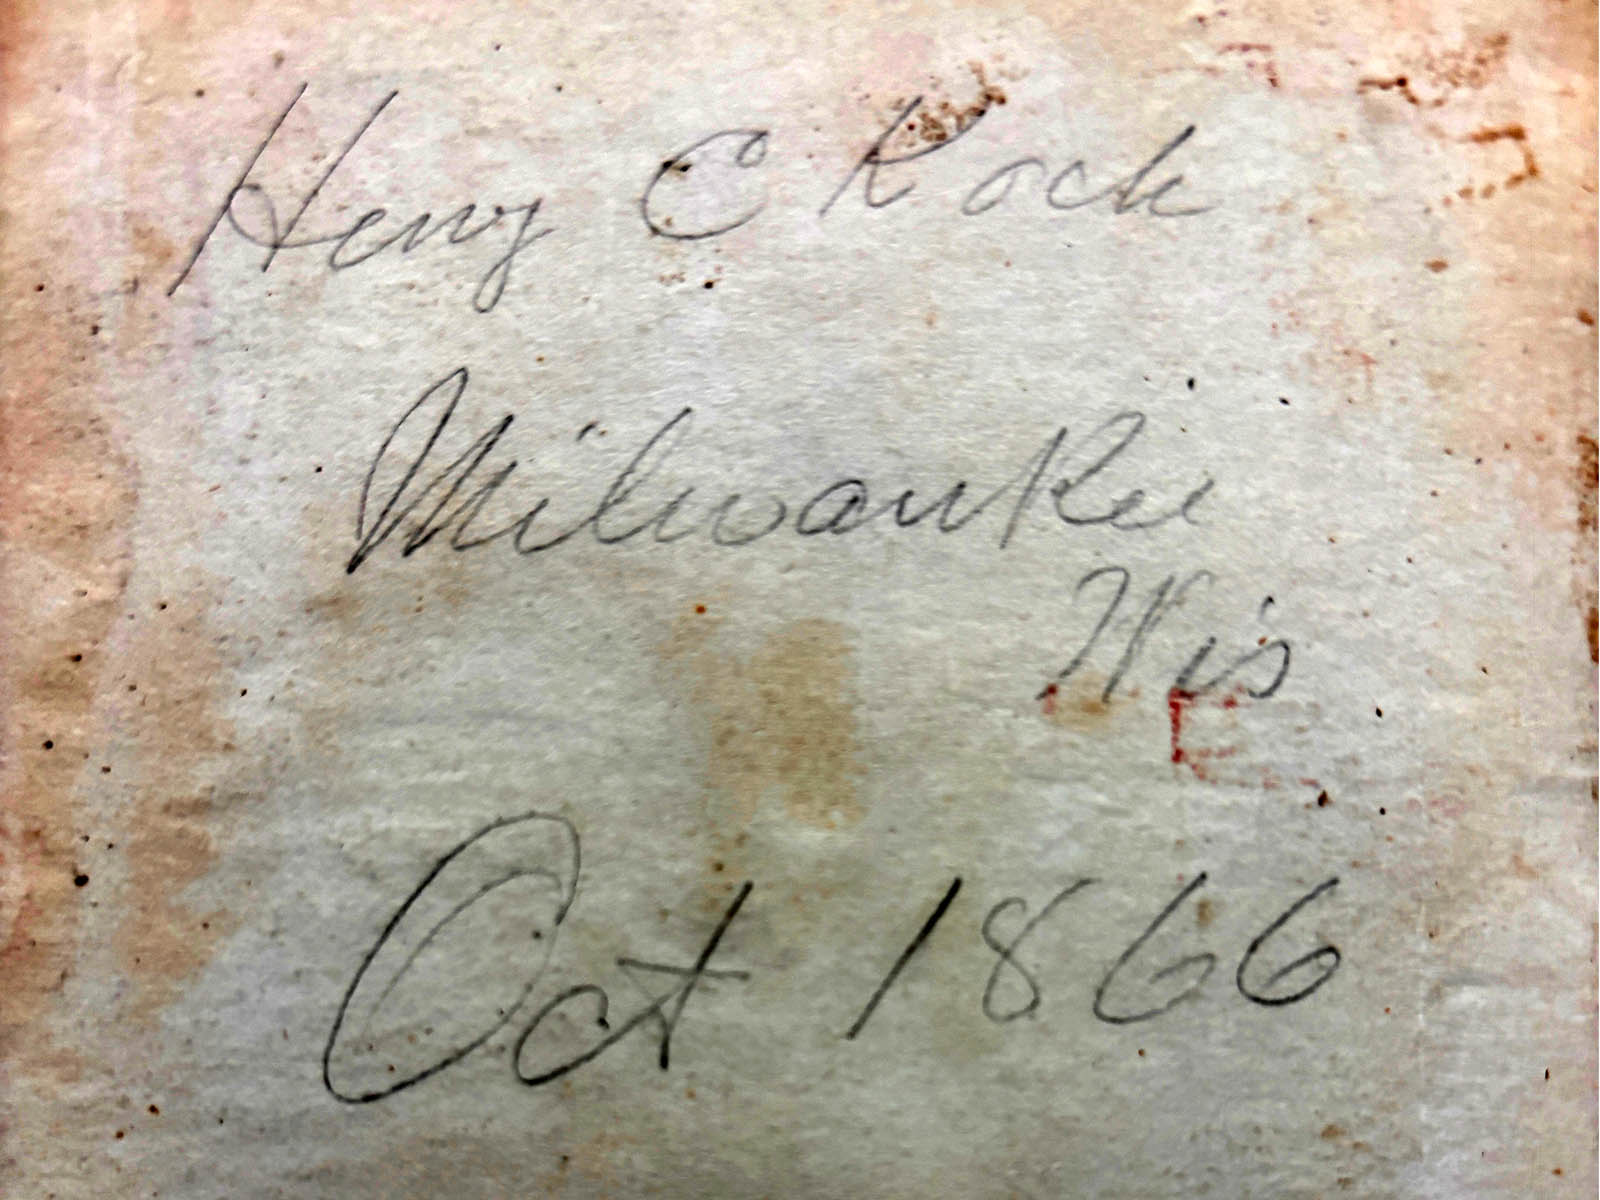 Henry C Koch
Milwaukee
Wis
E
Oct 1866